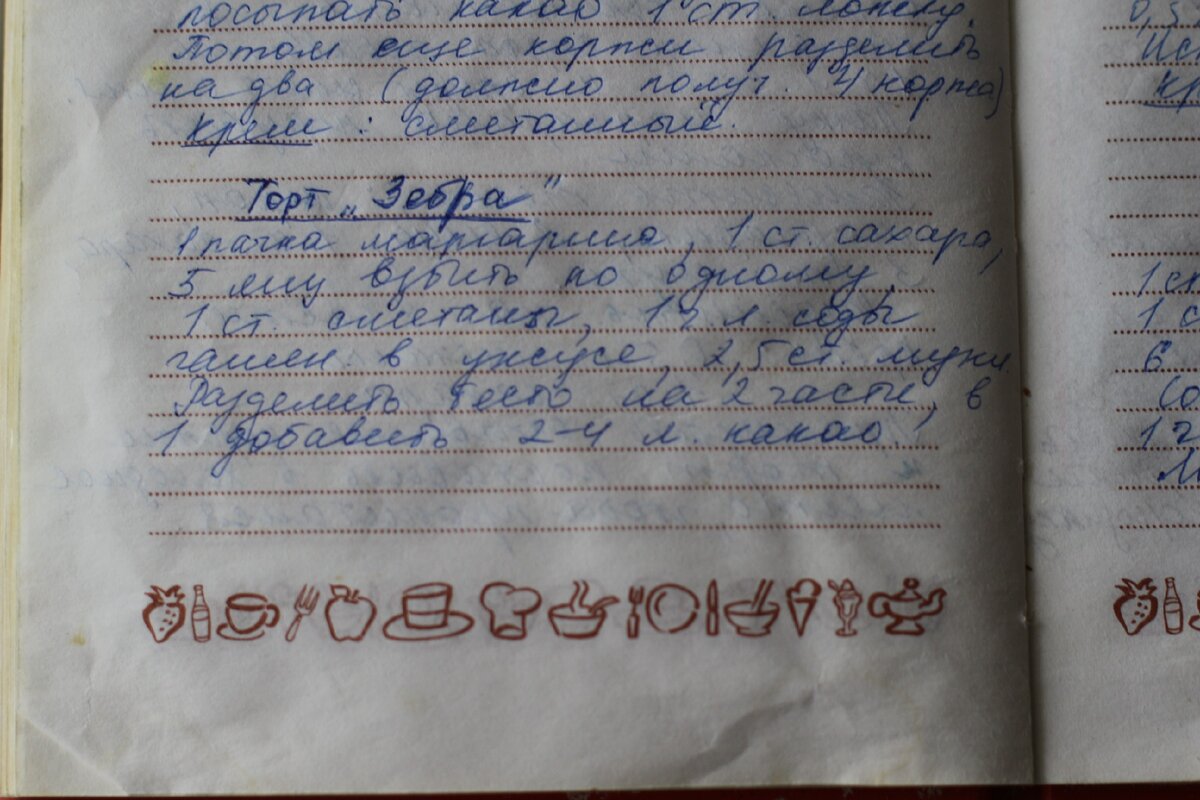 посыпать какао 1 ст. ложку.
Потом еще коржи разделить
на два (должно получ. 4 коржа)
Крем : сметанный.
Торт „Зебра"
1 пачка маргарина, 1 ст. сахара,
5 яиц взбить по одному,
1 ст. сметаны, 1 ч. л. соды
гашен. в уксусе, 2,5 ст. муки.
Разделить тесто на 2 части, в
1 добавить 2-4 л. какао.
0,5
Ис
Кр
1 с
1 с
6
1 ч